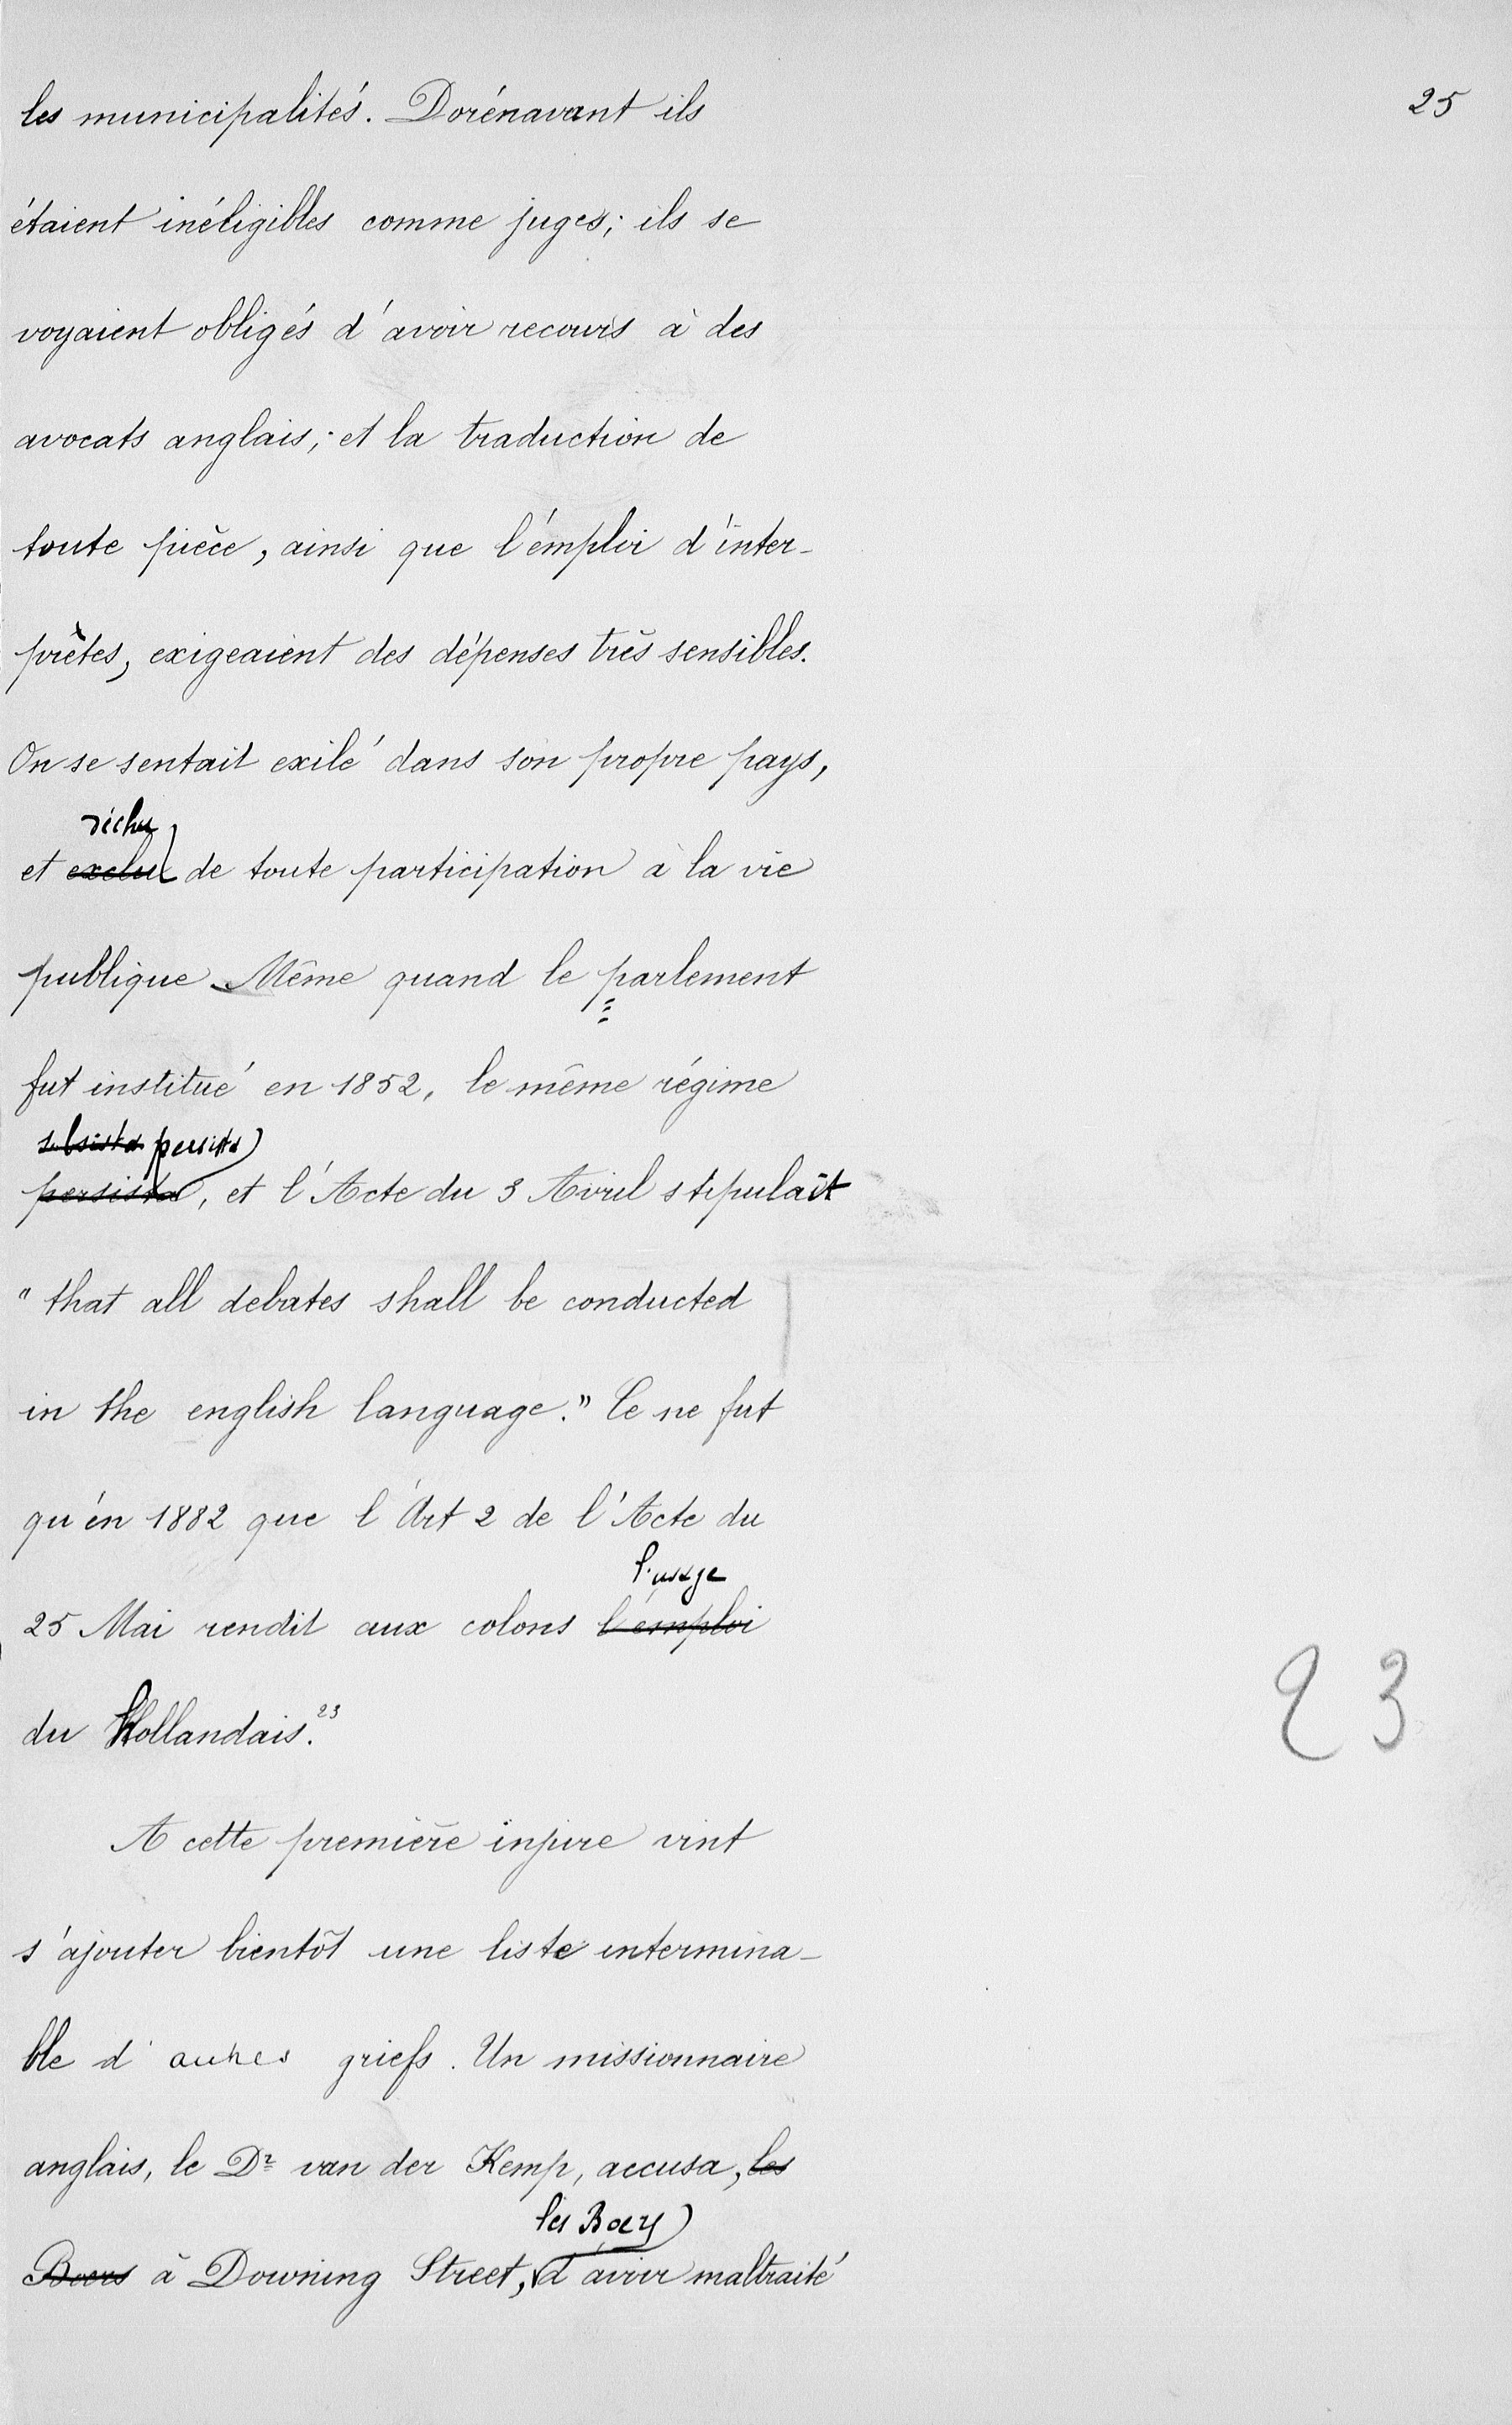 25
les municipalités. Dorénavant ils
étaient inéligibles comme juges; ils se
voyaient obligés d'avoir recours à des
avocats anglais; et la traduction de
toute pièce, ainsi que l'emploi d'inter-
prètes, exigeaient des dépenses très sensibles.
On se sentait exilé dans son propre pays,
déchu
et exclu de toute participation à la vie
publique. Même quand le parlement
fut institué en 1852, le même régime
subsista persista
persista, et l'Acte du 3 Avril stipulait
"that all debates shall be conducted
in the english language." Ce ne fut
qu'en 1882 que l'Art 2 de l'Acte du
l'usage
25 Mai rendit aux colons l'emploi
du Hollandais.23
23
A cette première injure vint
s'ajouter bientôt une liste intermina-
ble d'autres griefs. Un missionnaire
anglais, le Dr van der Kemp, accusa, les
les Boers
Boers à Downing Street, d'avoir maltraité